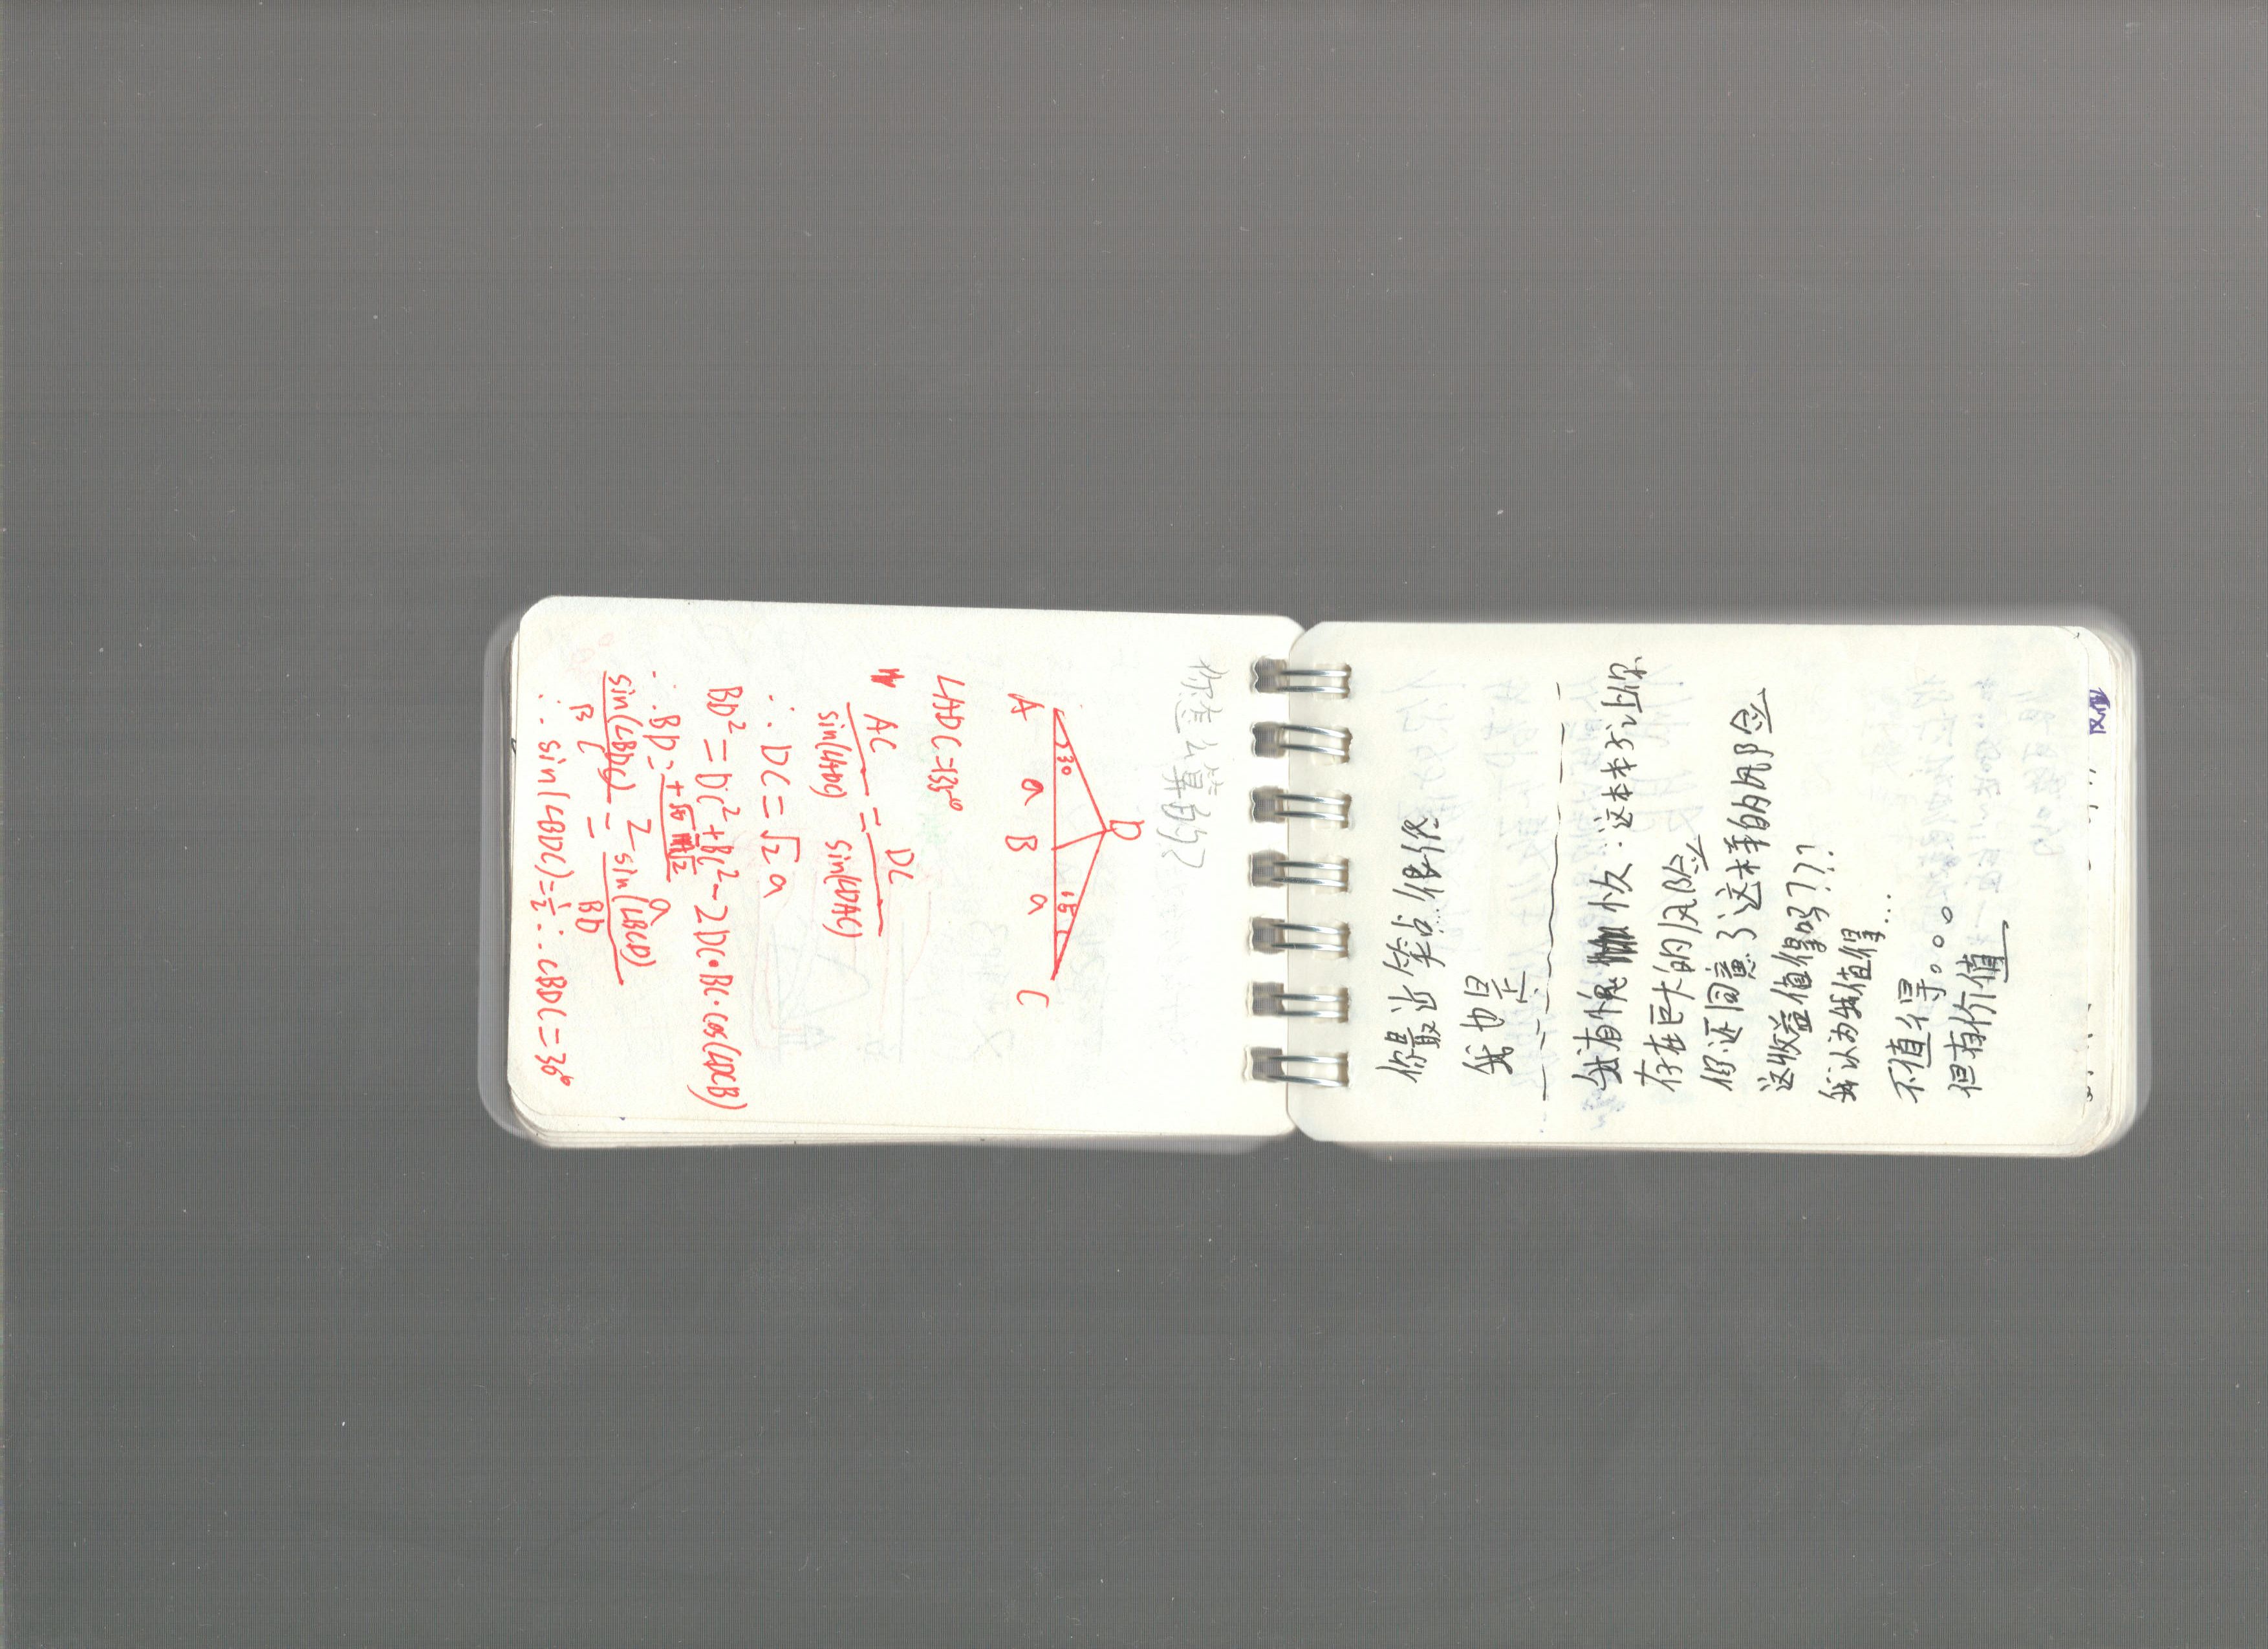 你怎么算的?
A
30
a
B
a
15
C
D
∠ADC=135°
AC/sin(∠ADC) = DC/sin(∠DAC)
∴ DC=√2 a
BD²=DC²+BC²-2DC·BC·cos(∠DCB)
∴ BD=
sin(∠BDC)/BC = sin(∠BCD)/BD
∴ sin(∠BDC)=½ ∴ ∠BDC=30°
你最近笑点很低
我也是
我有愧
这本本子让你
存在巨大的风险
你还同意了这样的风险
这收益值得吗???
我认为我值得...
不值得。。。
但有价值